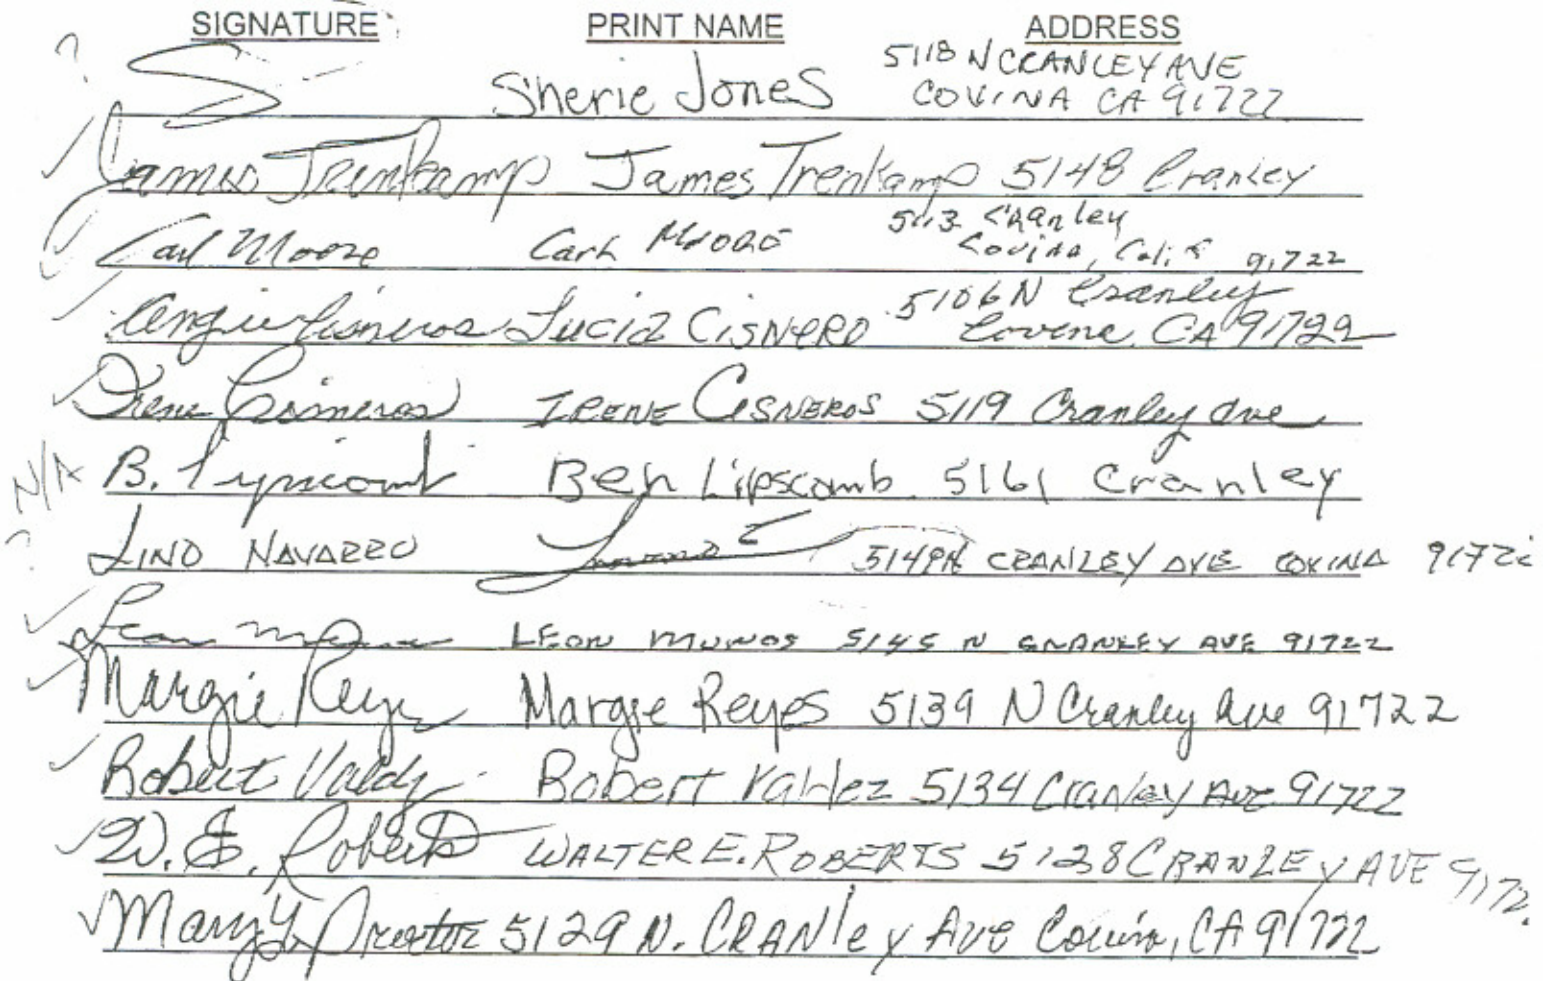 SIGNATURE PRINT NAME ADDRESS
? Sherie Jones 5118 N CRANLEY AVE
COVINA CA 91722
James Trenkamp James Trenkamp 5148 Cranley
Carl Moore Carl Moore 5113 Cranley
Covina, Calif 91722
Angie Cisneros Lucia Cisnero 5106 N Cranley
Covina, CA 91722
Irene Cisneros IRENE CISNEROS 5119 Cranley Ave
N/A B. Lipscomb Ben Lipscomb 5161 Cranley
? LINO NAVARRO 5149 N CRANLEY AVE COVINA 9172
Leon LEON MUNOS 5145 N CRANLEY AVE 91722
Margie Reyes Margie Reyes 5139 N Cranley Ave 91722
Robert Valdez Robert Valdez 5134 Cranley Ave 91722
W. E. Roberts WALTER E. ROBERTS 5128 CRANLEY AVE 9172
Mary 5129 N. CRANley Ave Covina, CA 91722